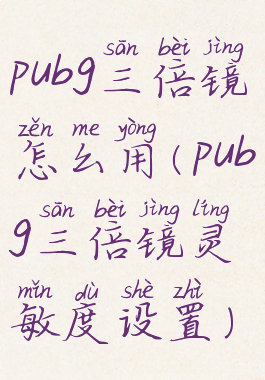 sān bèi jìng
pubg三倍镜
zěn me yòng
怎么用(pub
sān bèi jìng líng
g三倍镜灵
mǐn dù shè zhì
敏度设置)